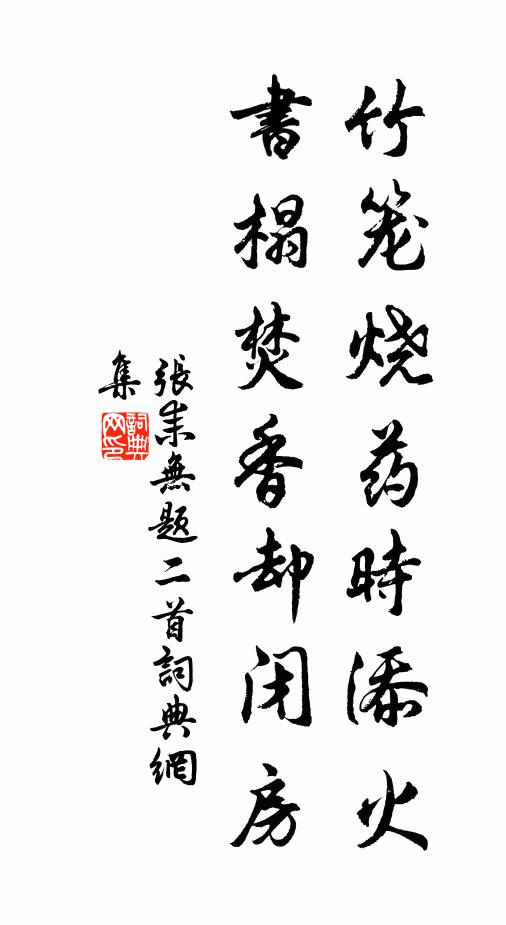 竹笼烧药時添火
書榻焚香却闭房
張耒無题二首詞典網
集
詞典
网印